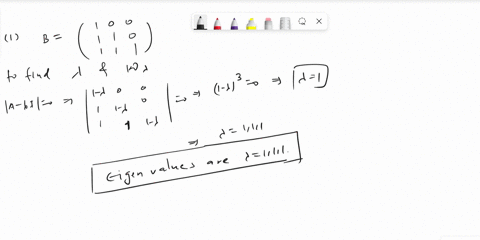 (1) B = ( 1 0 0
1 1 0
1 1 1 )
to find λ & Wλ
|A-λI|=0 ⇒ | 1-λ 0 0
1 1-λ 0
1 1 1-λ | =0 ⇒ (1-λ)³=0 ⇒ λ=1
⇒ λ=1,1,1
Eigen values are λ=1,1,1.